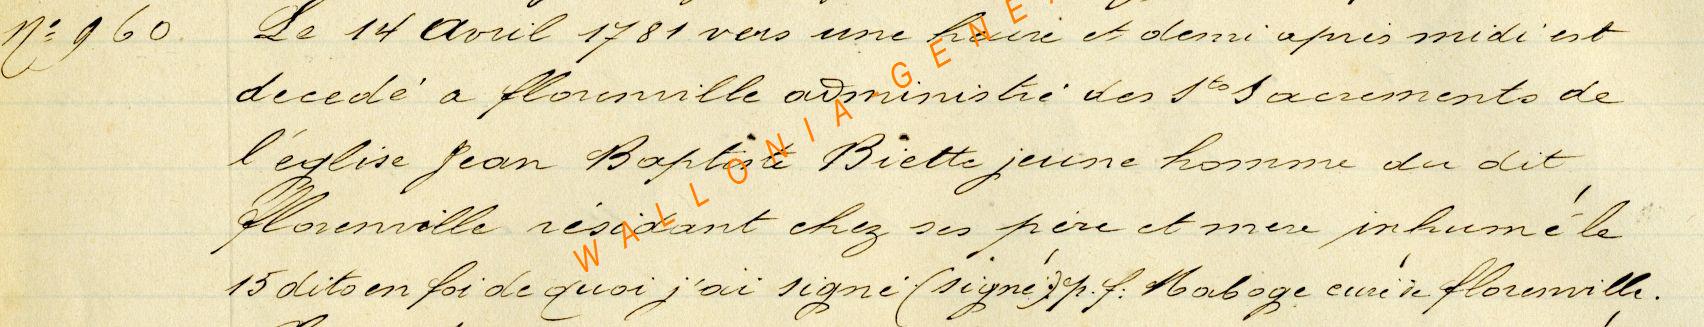 N° 960. Le 14 Avril 1781 vers une heure et demi apris midi est
decedé a florenville administré des Sts Sacrements de
l'église Jean Baptiste Biette jeune homme du dit
florenville résidant chez ses pére et mere inhumé le
15 dito en foi de quoi j'ai signé (signé) p. f: Maboge curé de florenville.
WALLONIA GENE